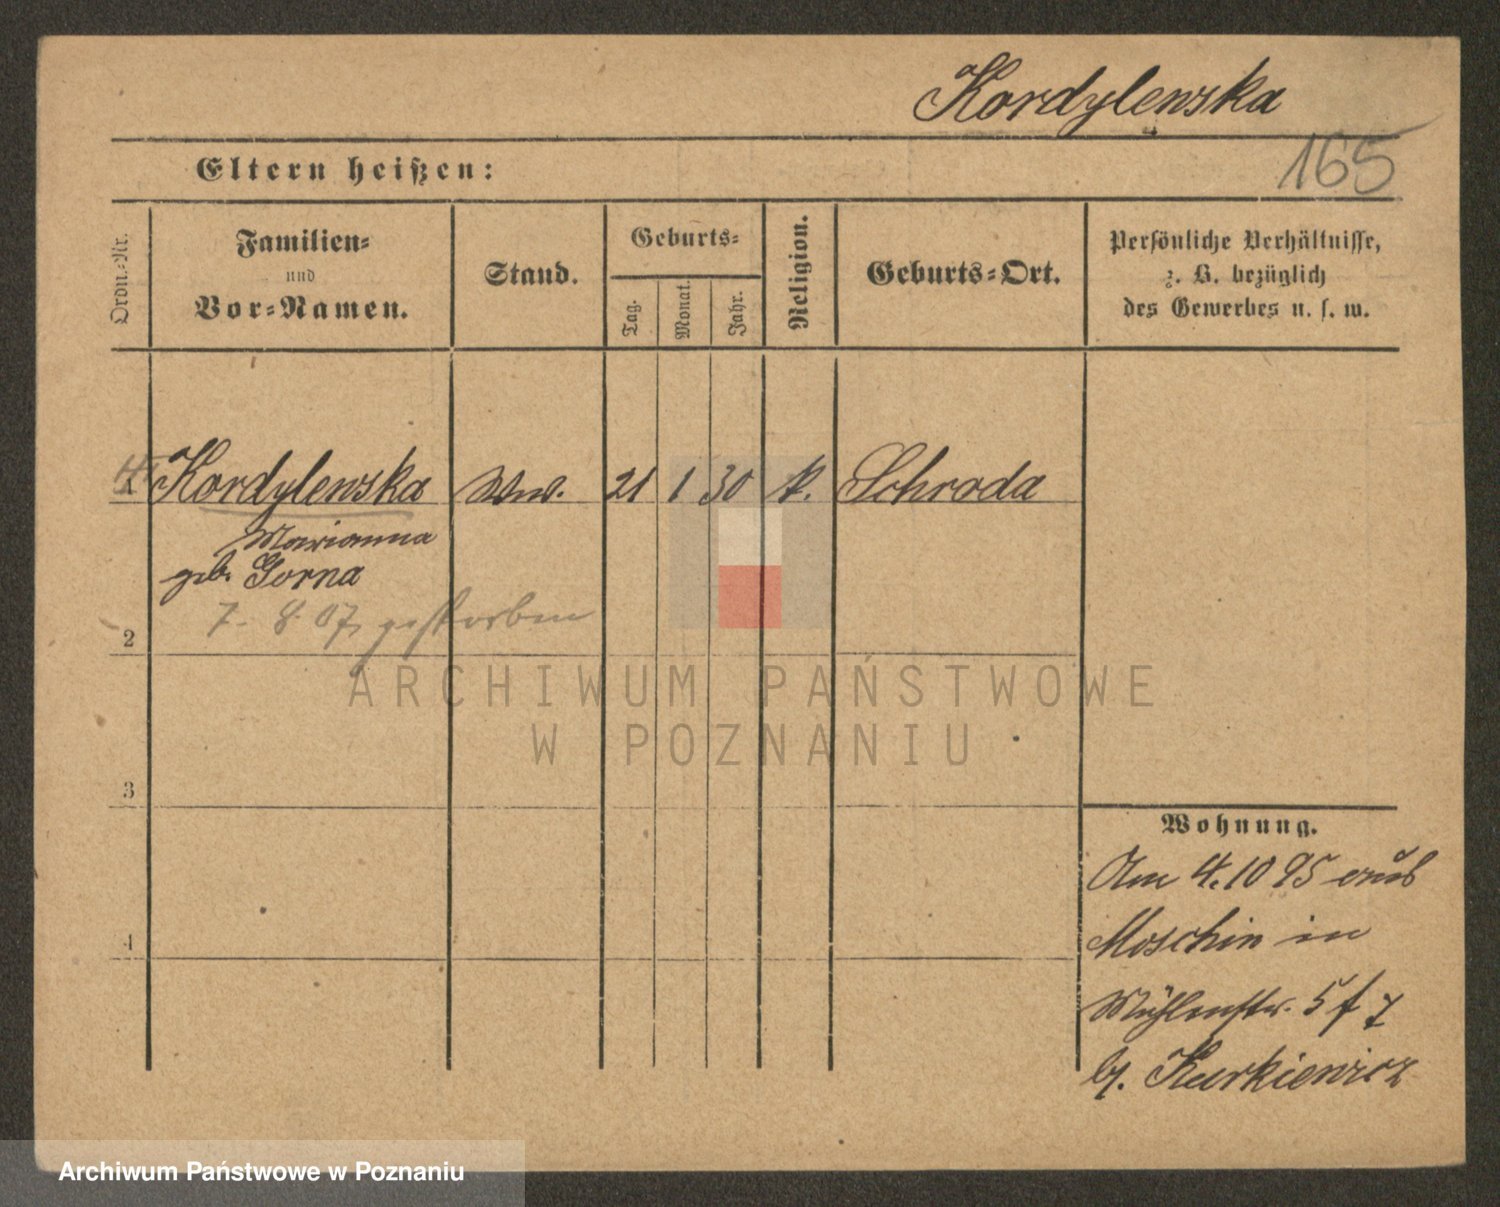 Kordylewska
165
Eltern heißen:
Ordn.-Nr.
Familien-
und
Vor-Namen.
Stand.
Geburts-
Tag.
Monat.
Jahr.
Religion.
Geburts-Ort.
Persönliche Verhältnisse,
z. B. bezüglich
des Gewerbes u. s. w.
1 Kordylewska Ww. 21 1 30 k. Schroda
Marianna
geb. Gorna
7. 8. 07 gestorben
2
3
4
Wohnung.
Am 4.10 95 aus
Moschin in
Mühlenstr. 5
b. Kurkiewicz
ARCHIWUM PAŃSTWOWE
W POZNANIU
Archiwum Państwowe w Poznaniu